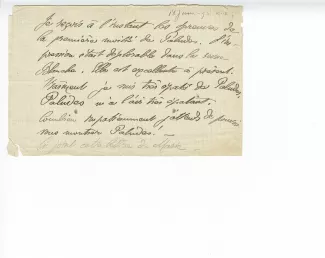 Je reçois à l'instant les épreuves de
la première moitié de Paludes. L'im
pression était déplorable dans la revue
Blanche. Elle est excellente à présent.
Vraiment je suis très épaté des Paludes
Paludes m'a l'air très épatant.
Combien impatiemment j'attends de pouvoir
vous montrer Paludes! —